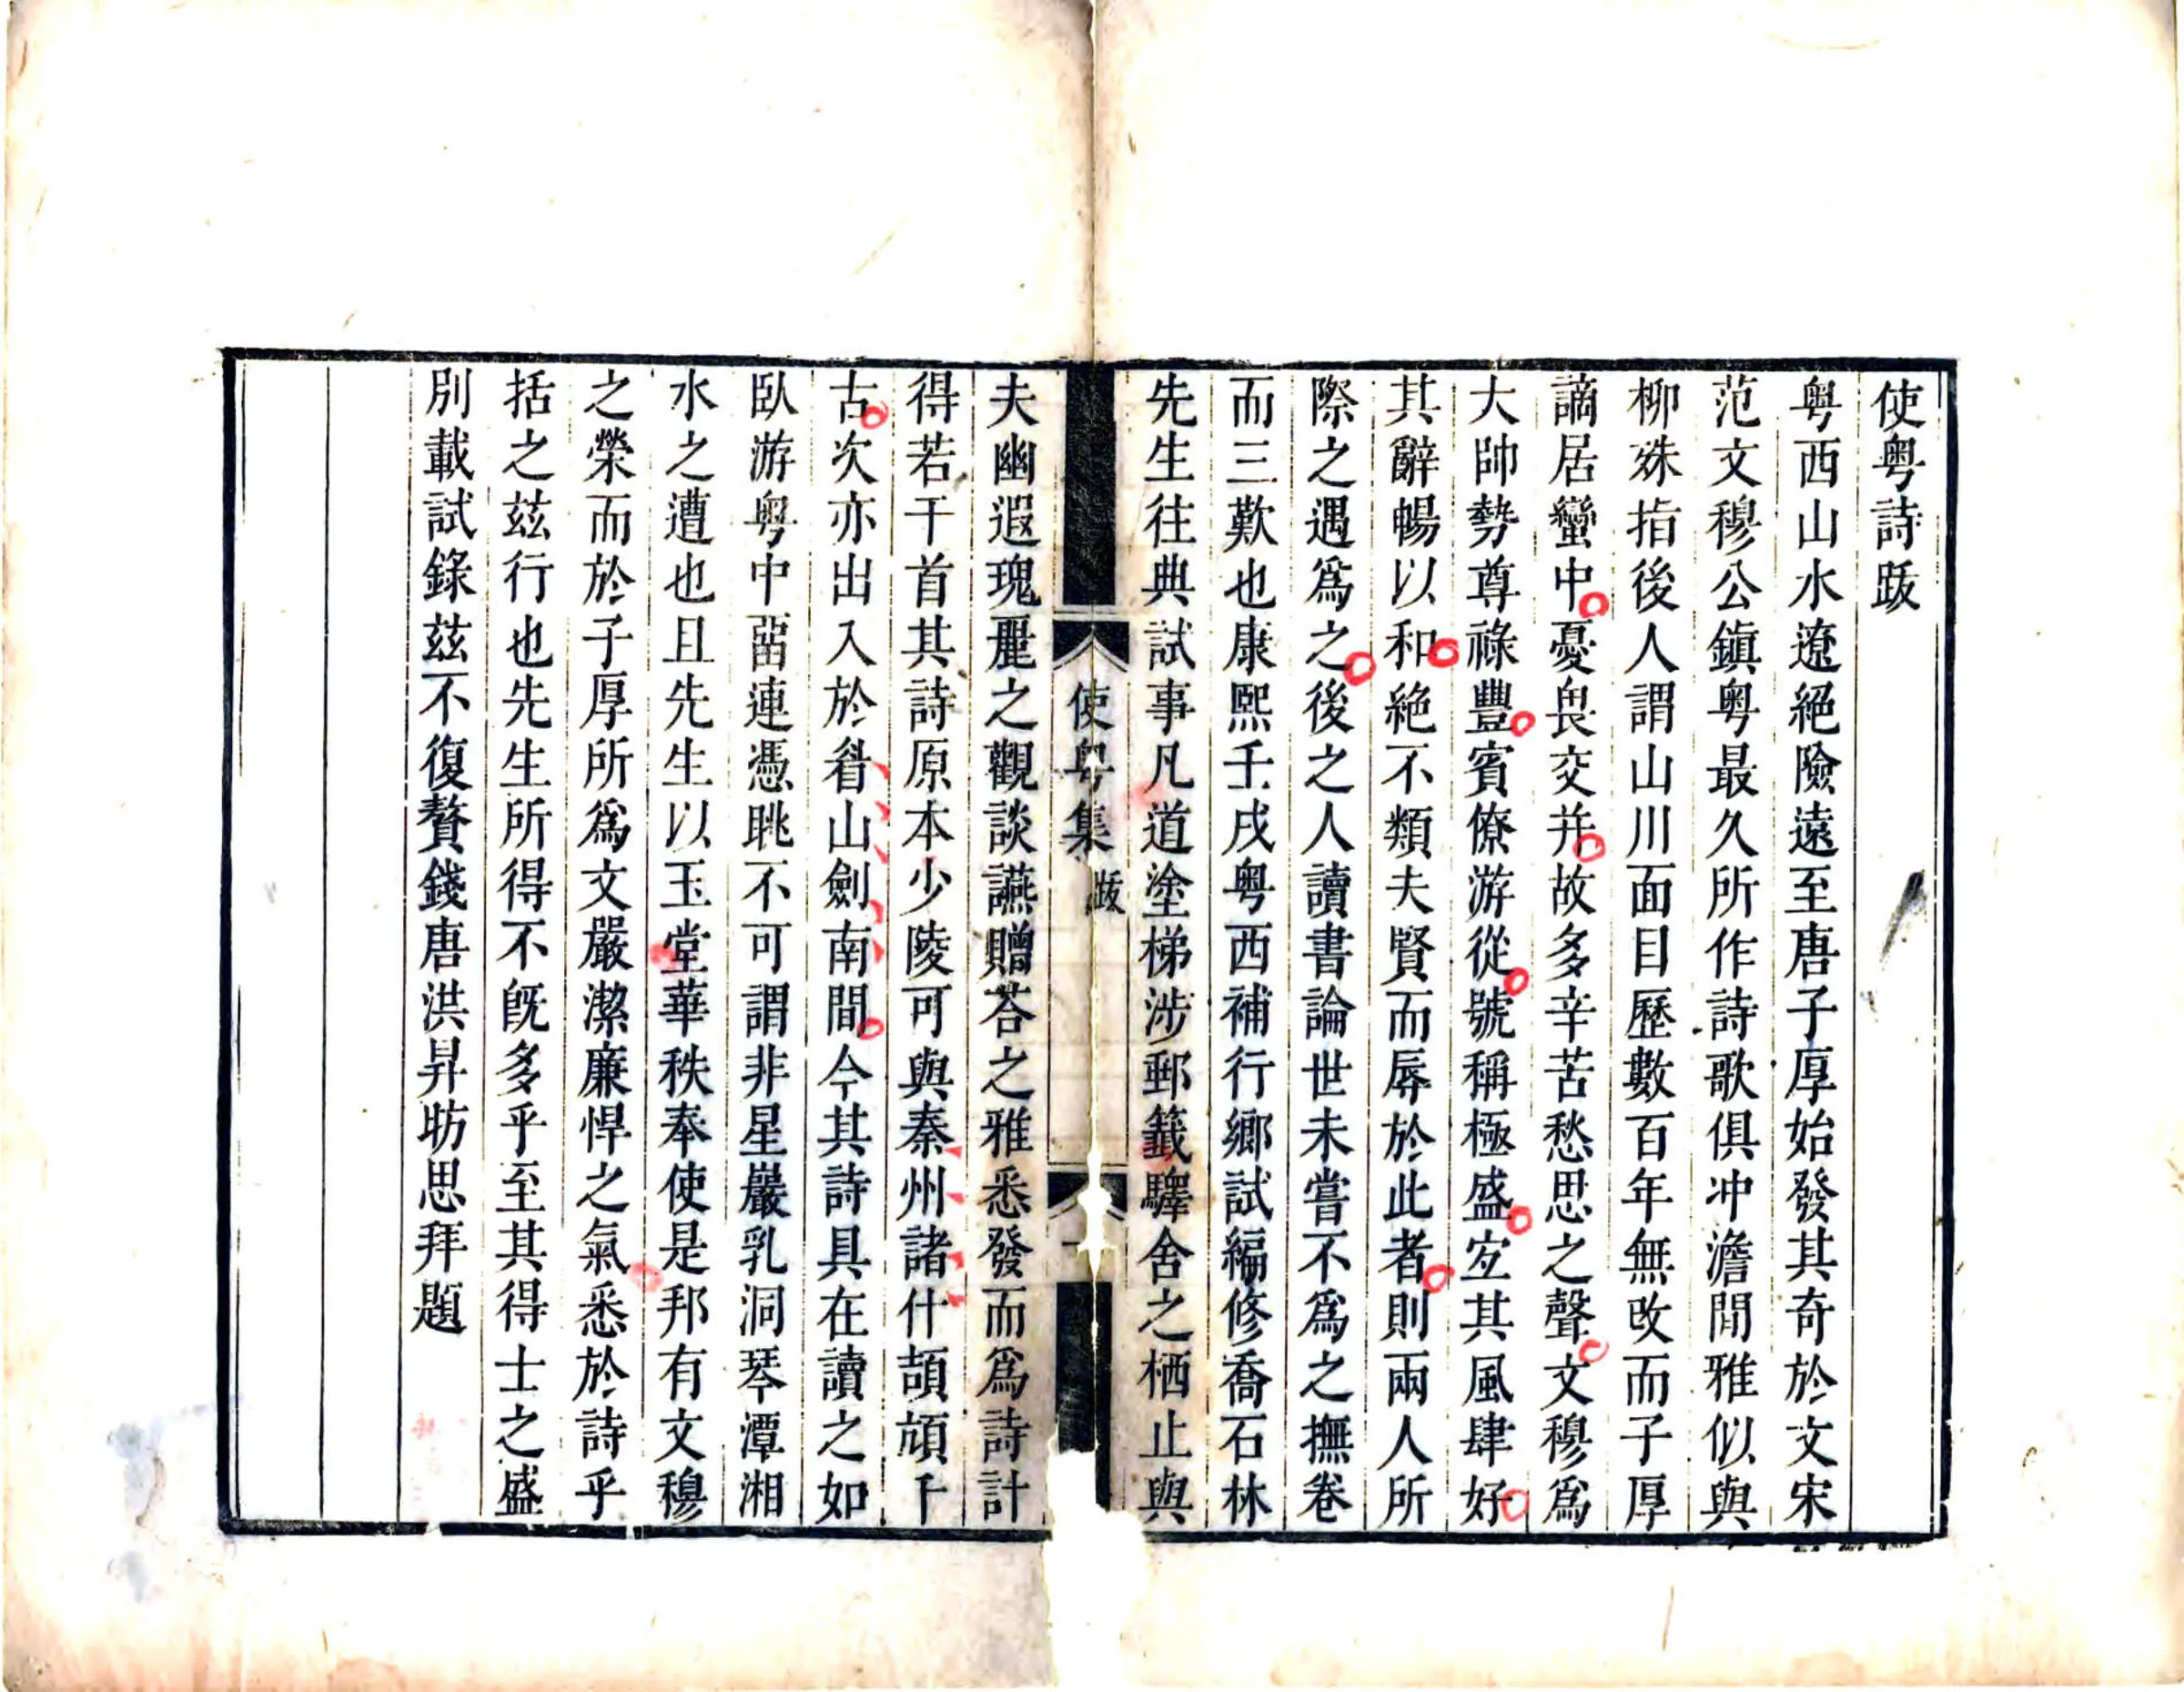 使粵詩跋
粤西山水遼絕險遠至唐子厚始發其奇於文宋
范文穆公鎮粤最久所作詩歌俱冲澹閒雅似與
柳殊指後人謂山川面目歷數百年無改而子厚
謫居蠻中憂畏交并故多辛苦愁思之聲文穆爲
大帥勢尊祿豐賓僚游從號稱極盛宐其風肆好
其辭暢以和絕不類夫賢而辱於此者則兩人所
際之遇爲之後之人讀書論世未嘗不爲之撫卷
而三歎也康熙壬戌粤西補行鄉試編修喬石林
先生往典試事凡道塗梯涉郵籖驛舍之栖止與
使粤集 跋 一
夫幽遐瑰麗之觀談讌贈荅之雅悉發而爲詩計
得若干首其詩原本少陵可與秦州諸什頡頏千
古次亦出入於眉山劍南間今其詩具在讀之如
臥游粤中畱連憑眺不可謂非星巖乳洞琴潭湘
水之遭也且先生以玉堂華秩奉使是邦有文穆
之榮而於子厚所爲文嚴潔廉悍之氣悉於詩乎
括之茲行也先生所得不旣多乎至其得士之盛
別載試錄茲不復贅錢唐洪昇昉思拜題